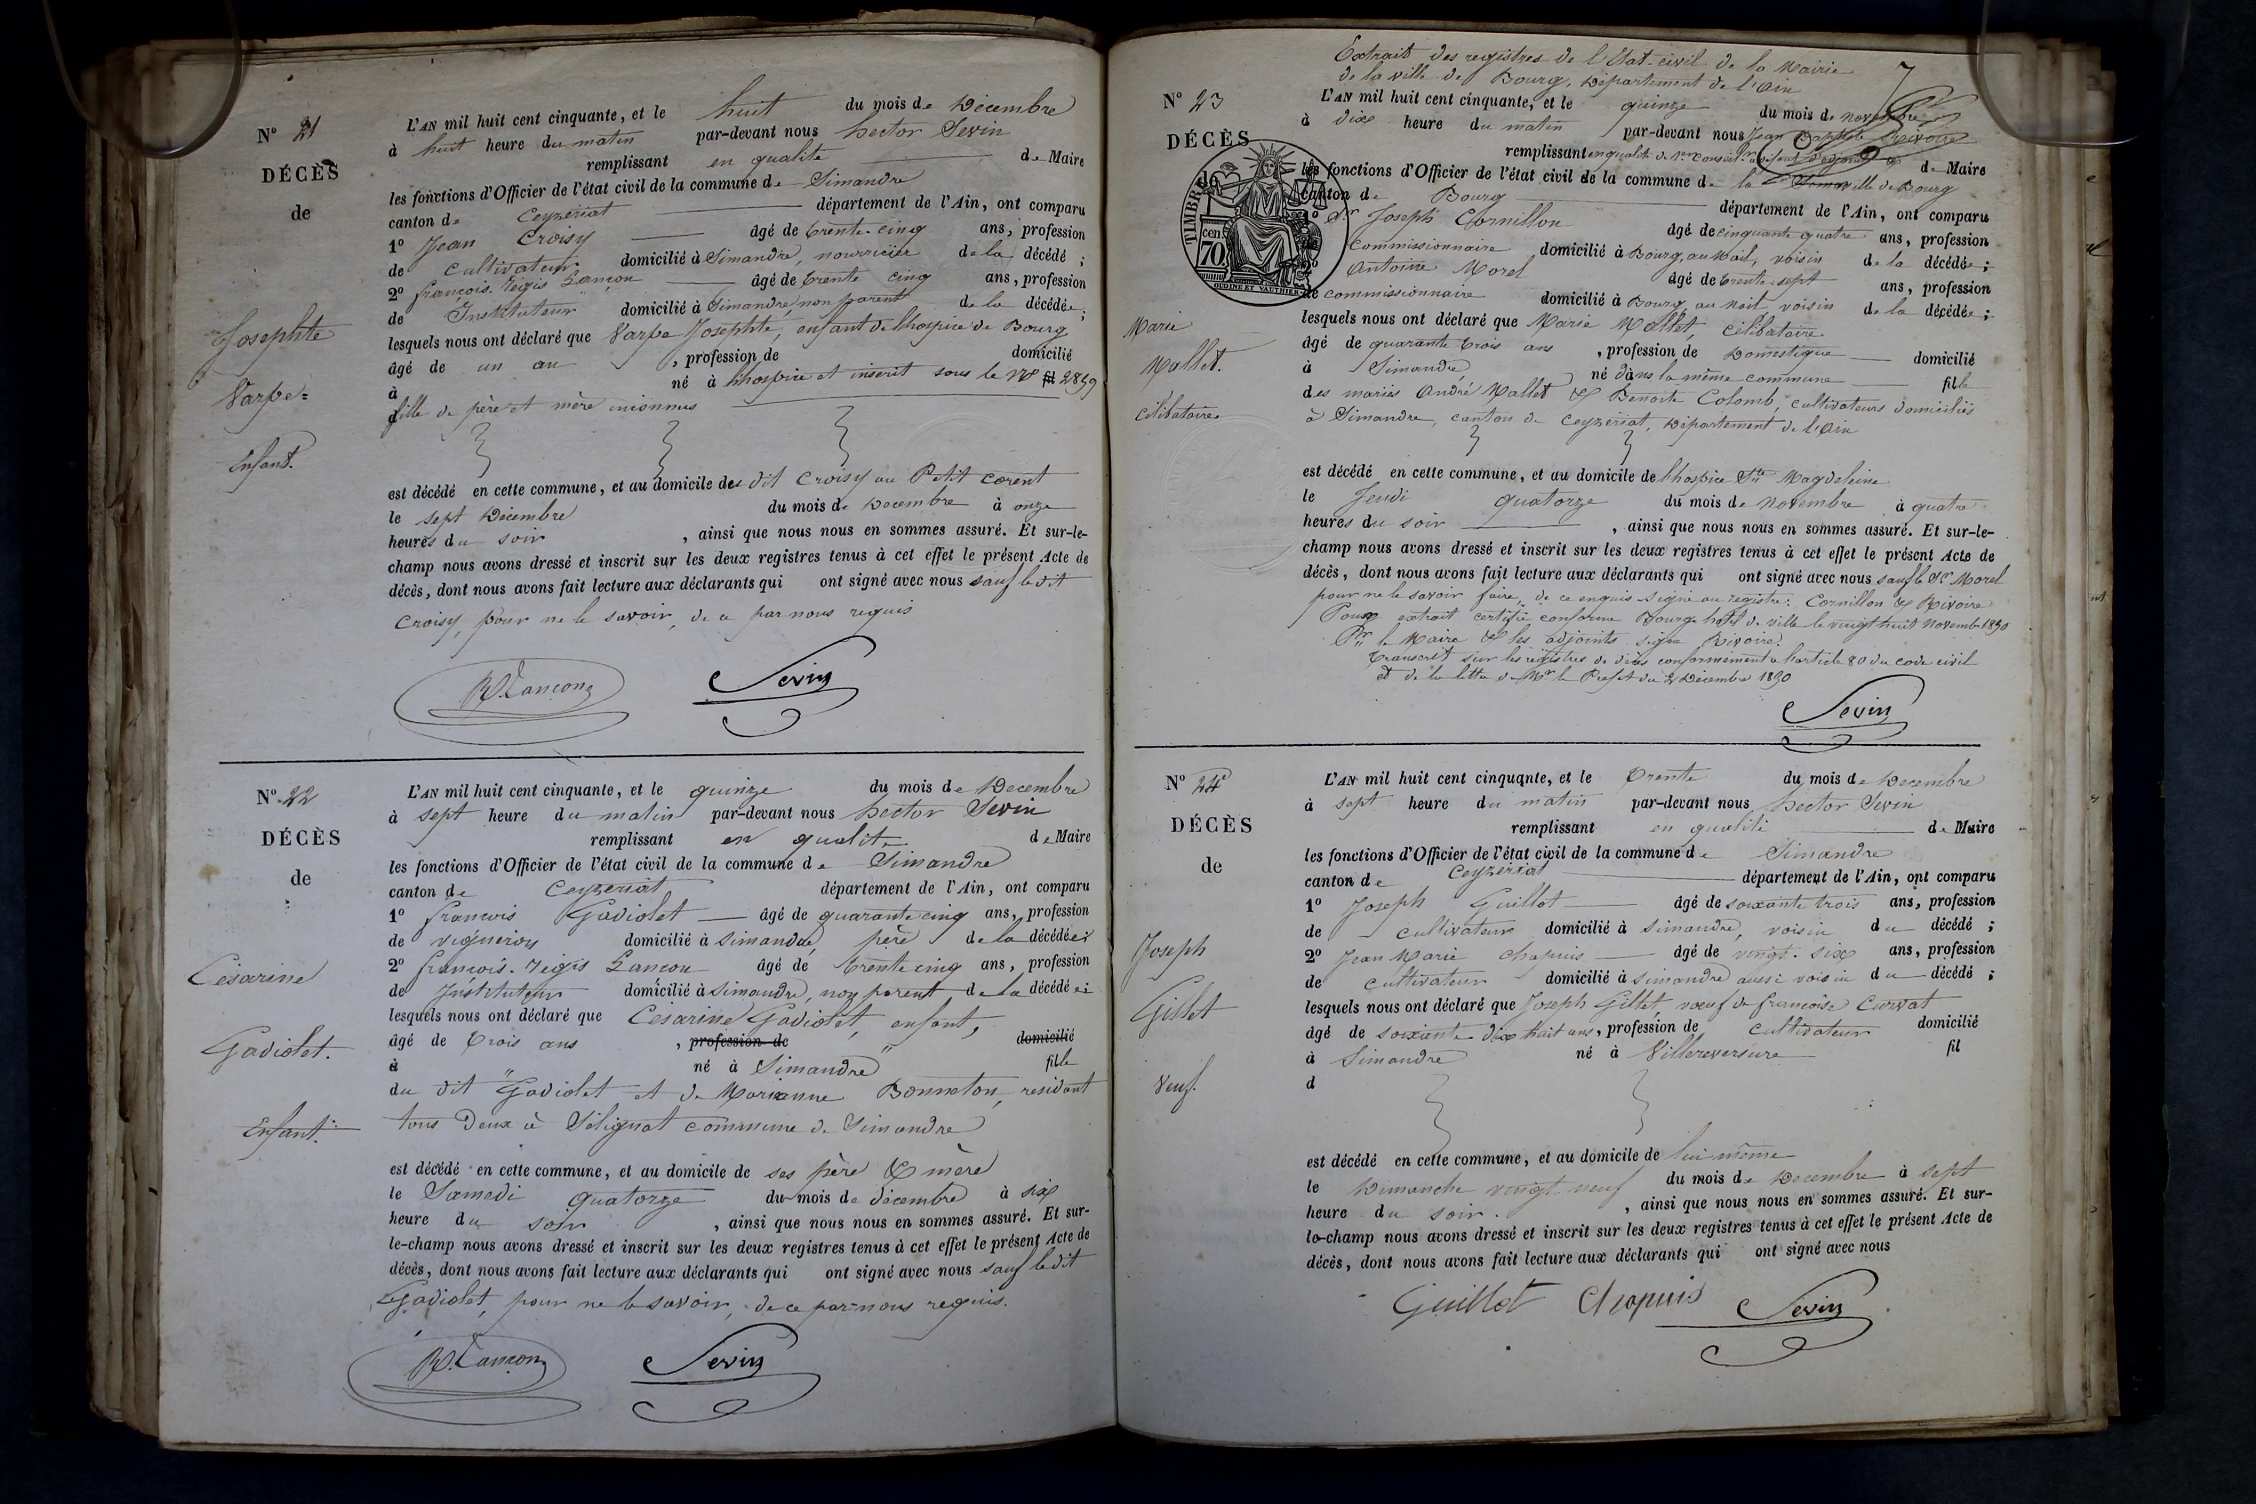 N° 21
DÉCÈS
de
Josephte
Varpe
Enfant.
L'AN mil huit cent cinquante, et le huit du mois de Décembre
à huit heure du matin par-devant nous hector Sevin
remplissant en qualité de Maire
les fonctions d'Officier de l'état civil de la commune de Simandre
canton de Ceyzeriat département de l'Ain, ont comparu
1° Jean Croisy âgé de trente-cinq ans, profession
de cultivateur domicilié à Simandre, nourricier de la décédé ;
2° françois-Régis Lançon âgé de trente cinq ans, profession
de Instituteur domicilié à Simandre, non parent de la décédée ;
lesquels nous ont déclaré que Varpe Josephte, enfant de l'hospice de Bourg
âgé de un an , profession de domicilié
à né à l'hospice et inscrit sous le N° 2859
fille de père et mère inconnus
est décédé en cette commune, et au domicile des dit Croisy au Petit Corent
le sept Décembre du mois de Decembre à onze
heures du soir , ainsi que nous nous en sommes assuré. Et sur-le-
champ nous avons dressé et inscrit sur les deux registres tenus à cet effet le présent Acte de
décès, dont nous avons fait lecture aux déclarants qui ont signé avec nous sauf le dit
Croisy, pour ne le savoir, de ce par nous requis
R. Lançon Sevin
N° 22
DÉCÈS
de
Césarine
Gadiolet.
Enfant.
L'AN mil huit cent cinquante, et le quinze du mois de Decembre
à sept heure du matin par-devant nous hector Sevin
remplissant en qualité de Maire
les fonctions d'Officier de l'état civil de la commune de Simandre
canton de Ceyzeriat département de l'Ain, ont comparu
1° françois Gadiolet âgé de quarante cinq ans, profession
de vigneron domicilié à Simandre, père de la décédée ;
2° françois-Régis Lançon âgé de trente cinq ans, profession
de Instituteur domicilié à Simandre, non parent de la décédée ;
lesquels nous ont déclaré que Cesarine Gadiolet, enfant,
âgé de trois ans , profession de domicilié
à né à Simandre fille
du dit Gadiolet et de Marianne Bonneton, residant
tous deux à Sélignat commune de Simandre
est décédé en cette commune, et au domicile de ses père & mère
le Samedi quatorze du mois de décembre à six
heure du soir , ainsi que nous nous en sommes assuré. Et sur-
le-champ nous avons dressé et inscrit sur les deux registres tenus à cet effet le présent Acte de
décès, dont nous avons fait lecture aux déclarants qui ont signé avec nous sauf le dit
Gadiolet, pour ne le savoir, de ce par nous requis.
R. Lançon Sevin
Extrait des registres de l'Etat-civil de la Mairie
de la ville de Bourg, Département de l'Ain
N° 23
DÉCÈS
de
TIMBRE
cen 70
OUDINÉ ET VAUTHIER
Marie
Mallet.
célibataire
L'AN mil huit cent cinquante, et le quinze du mois de novembre
à dix heure du matin par-devant nous Jean Baptiste Rivoire
remplissant en qualité de de Maire
les fonctions d'Officier de l'état civil de la commune de la ville de Bourg
canton de Bourg département de l'Ain, ont comparu
1° Joseph Cornillon âgé de cinquante quatre ans, profession
de Commissionnaire domicilié à Bourg, au Mail, voisin de la décédée ;
2° Antoine Morel âgé de trente-sept ans, profession
de commissionnaire domicilié à Bourg, au Mail voisin de la décédée ;
lesquels nous ont déclaré que Marie Mallet, célibataire
âgé de quarante trois ans , profession de Domestique domicilié
à Simandre né dans la même commune fille
des mariés André Mallet & Benoite Colomb, cultivateurs domiciliés
à Simandre, canton de Ceyzériat, Département de l'Ain
est décédé en cette commune, et au domicile de l'hospice Ste Magdeleine
le Jeudi quatorze du mois de novembre à quatre
heures du soir , ainsi que nous nous en sommes assuré. Et sur-le-
champ nous avons dressé et inscrit sur les deux registres tenus à cet effet le présent Acte de
décès, dont nous avons fait lecture aux déclarants qui ont signé avec nous sauf le Sr Morel
pour ne le savoir faire, de ce enquis. Signé au registre : Cornillon & Rivoire
Pour extrait certifié conforme Bourg hotel de ville le vingt huit Novembre 1850
Pr le Maire & les adjoints signé Rivoire
Transcrit sur les registres de décès conformément à l'article 80 du code civil
et de la lettre de Mr le Prefet du 2 Decembre 1850
Sevin
N° 24
DÉCÈS
de
Joseph
Gillet
Veuf.
L'AN mil huit cent cinquante, et le trente du mois de Decembre
à sept heure du matin par-devant nous hector Sevin
remplissant en qualité de Maire
les fonctions d'Officier de l'état civil de la commune de Simandre
canton de Ceyzeriat département de l'Ain, ont comparu
1° Joseph Guillot âgé de soixante trois ans, profession
de cultivateur domicilié à Simandre, voisin du décédé ;
2° Jean Marie Chapuis âgé de vingt-six ans, profession
de cultivateur domicilié à Simandre aussi voisin du décédé ;
lesquels nous ont déclaré que Joseph Gillet, veuf de françoise Curvat
âgé de soixante dix huit ans, profession de cultivateur domicilié
à Simandre né à Villereversure fil
d
est décédé en cette commune, et au domicile de lui même
le Dimanche vingt-neuf du mois de Decembre à sept
heure du soir , ainsi que nous nous en sommes assuré. Et sur-
le-champ nous avons dressé et inscrit sur les deux registres tenus à cet effet le présent Acte de
décès, dont nous avons fait lecture aux déclarants qui ont signé avec nous
Guillot Chapuis Sevin